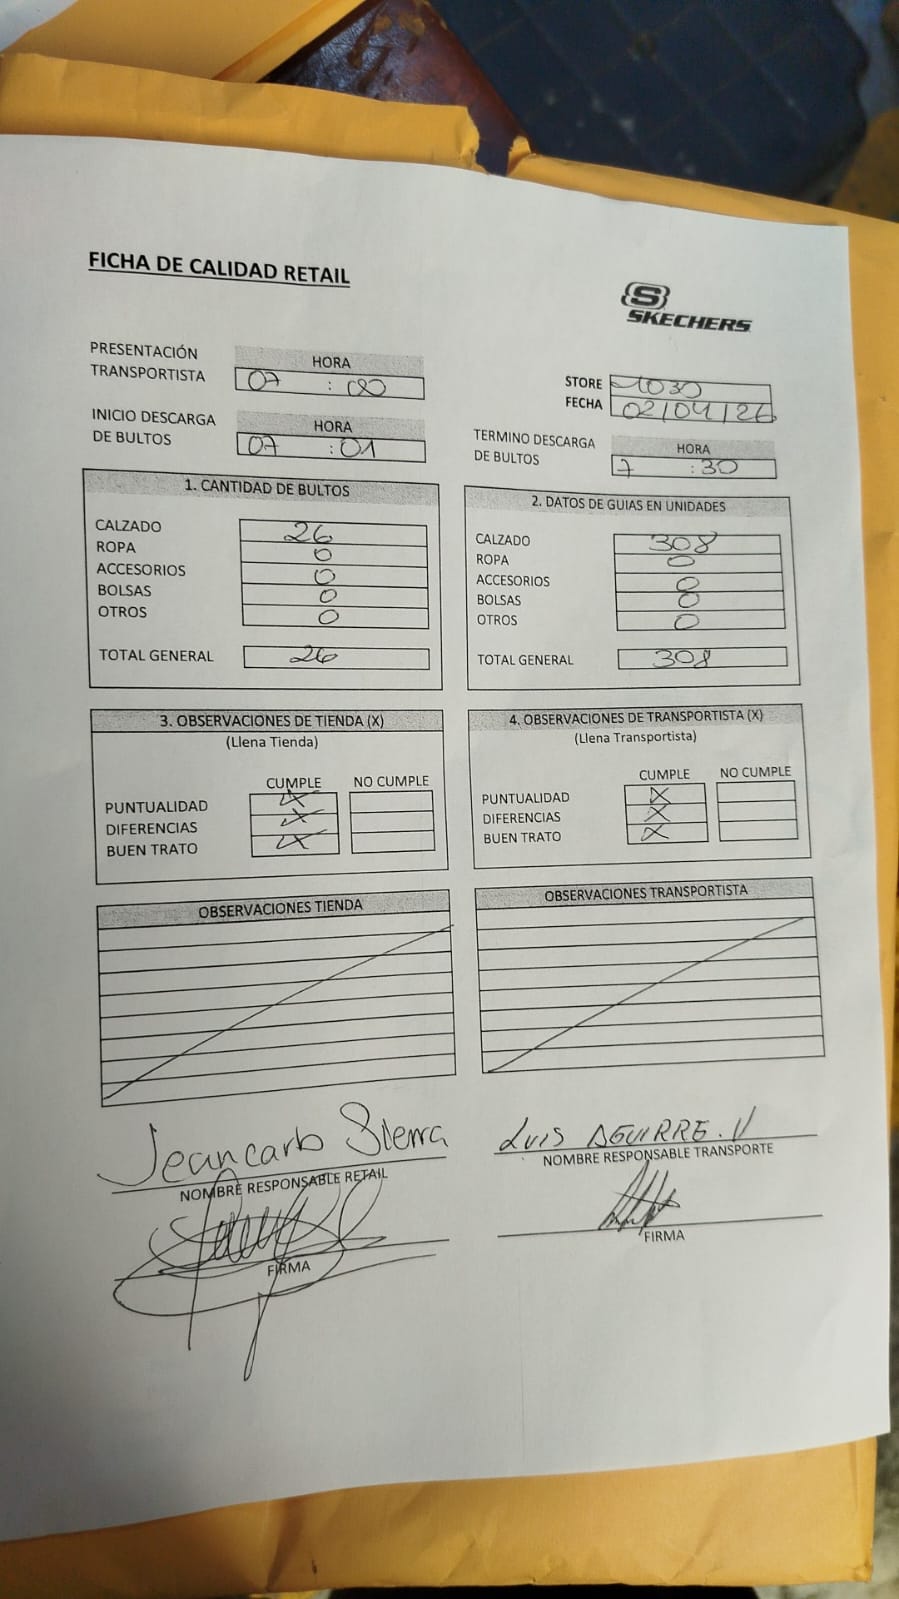 FICHA DE CALIDAD RETAIL
S
SKECHERS
PRESENTACIÓN TRANSPORTISTA
HORA
07 : 00
STORE 1030
FECHA 02/04/26
INICIO DESCARGA DE BULTOS
HORA
07 : 01
TERMINO DESCARGA DE BULTOS
HORA
7 : 30
1. CANTIDAD DE BULTOS
CALZADO 26
ROPA 0
ACCESORIOS 0
BOLSAS 0
OTROS 0
TOTAL GENERAL 26
2. DATOS DE GUIAS EN UNIDADES
CALZADO 308
ROPA 0
ACCESORIOS 0
BOLSAS 0
OTROS 0
TOTAL GENERAL 308
3. OBSERVACIONES DE TIENDA (X)
(Llena Tienda)
CUMPLE NO CUMPLE
PUNTUALIDAD X
DIFERENCIAS X
BUEN TRATO X
4. OBSERVACIONES DE TRANSPORTISTA (X)
(Llena Transportista)
CUMPLE NO CUMPLE
PUNTUALIDAD X
DIFERENCIAS X
BUEN TRATO X
OBSERVACIONES TIENDA
OBSERVACIONES TRANSPORTISTA
Jeancarlo Sierra
NOMBRE RESPONSABLE RETAIL
FIRMA
LUIS AGUIRRE. V
NOMBRE RESPONSABLE TRANSPORTE
FIRMA